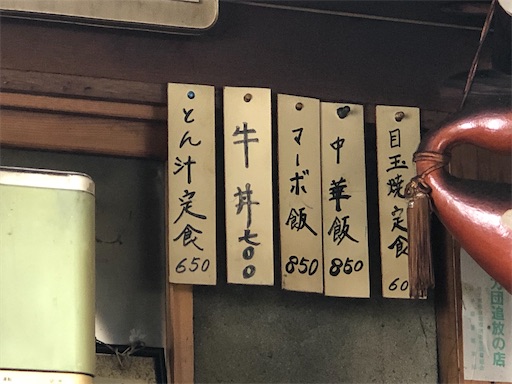 とん汁定食
650
牛丼
700
マーボ飯
850
中華飯
850
目玉焼定食
60
団追放の店